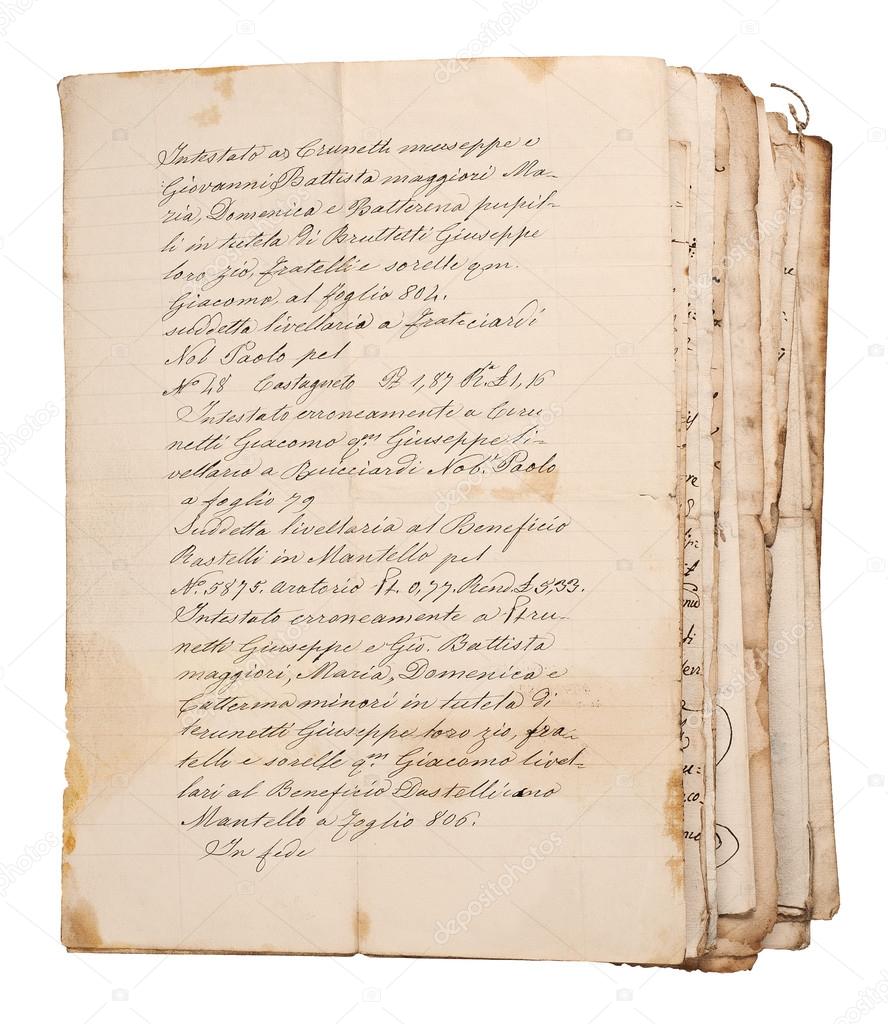 Intestato a Crunetti Giuseppe e
Giovanni Battista maggiori Ma-
ria, Domenica e Batterina pupil-
li in tutela di Bruttetti Giuseppe
loro zio, fratelli e sorelle qm.
Giacomo, al foglio 804.
suddetta livellaria a
Nob Paolo pel
No 48 Castagneto Pt 1,87 Ra. £ 1,16
Intestato erroneamente a Cru
netti Giacomo qm Giuseppe li-
vellario a Buicciardi Nob.r Paolo
a foglio 79
Suddetta livellaria al Beneficio
Rastelli in Mantello pel
No. 5875. aratorio Pt. 0,77. Rend. £ 5,33.
Intestato erroneamente a Pru-
netti Giuseppe e Gio. Battista
maggiori, Maria, Domenica e
Catterina minori in tutela di
Giuseppe loro zio, fra-
telli e sorelle qm Giacomo livel-
lari al Beneficio
Mantello a foglio 806.
In fede